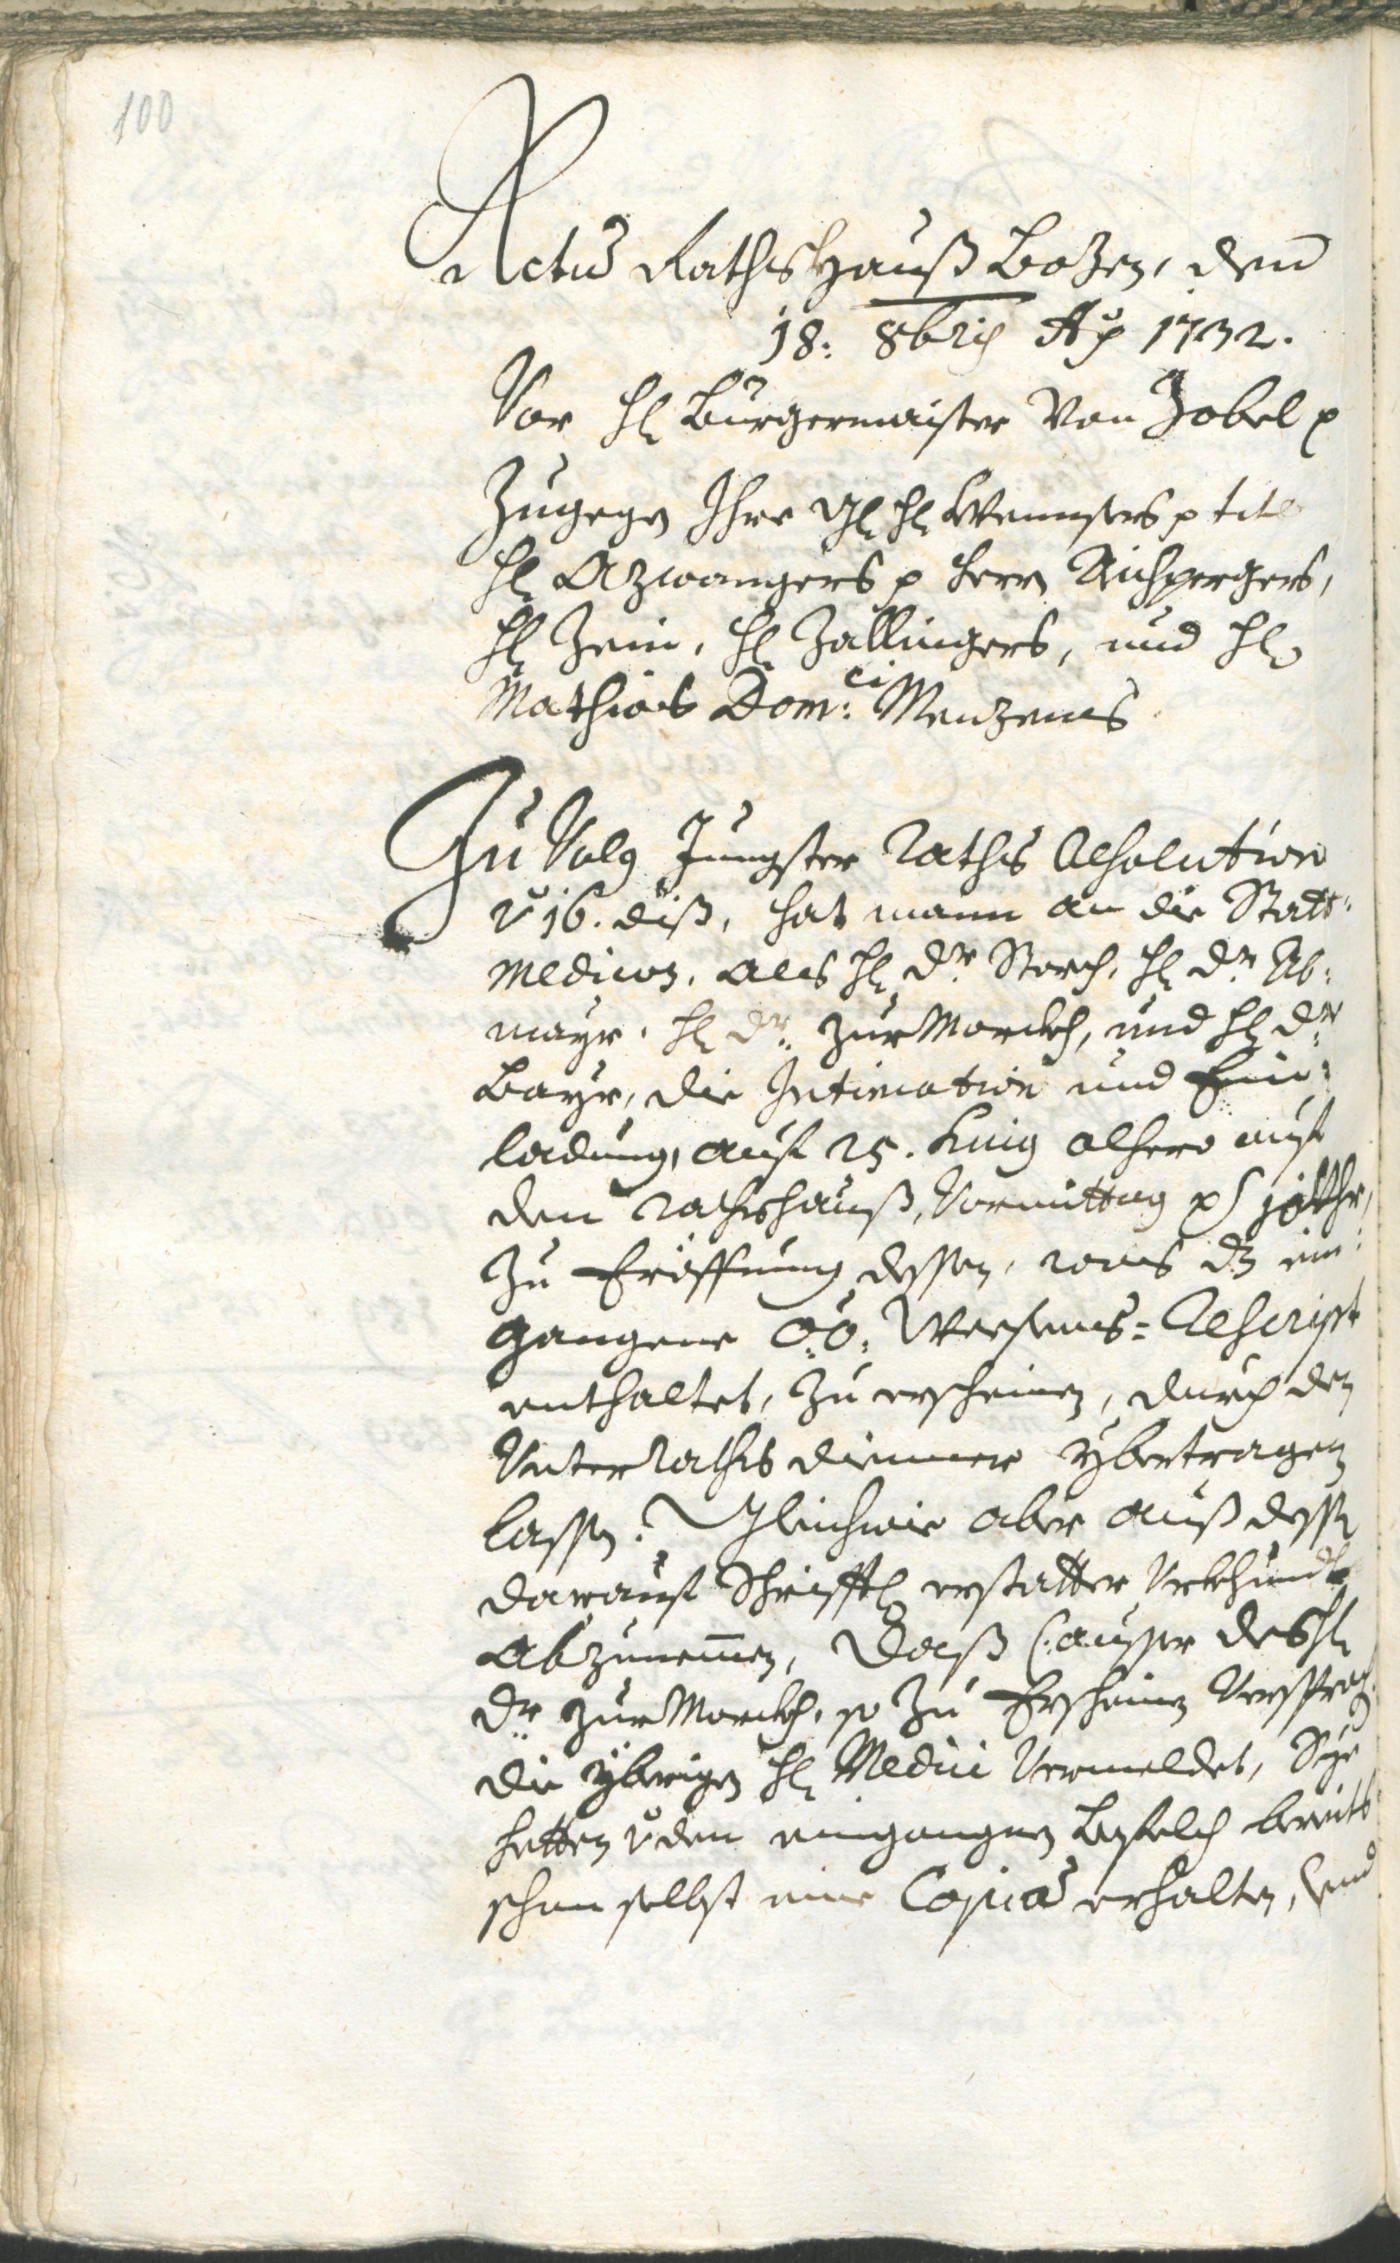 100
Actum Rathshauß Bozen, den
18: 8bris Ao 1732.
Vor h: Burgermaister Von Zobel p
Zugegen Ihro Gl: h: Wenserß p titl
h: Azwangerß p herrn Aichpergerß,
h: Zein, h: Zallingerß, und h:
Mathias Dom:ci Menzenß
Zu Volg Jungster Raths Resolution
v 16. diß, hat mann an die Statt=
Medicos, alß h: Dr. Storch, h: Dr. Ab=
mayr, h: Dr. Zur Markh, und h: Dr.
Bayr, die Intimation und Ein=
ladung, auf 25. huig alhero auf
den Rathshauß, Vormittag p 10 Uhr,
Zu Eröffnung dessen, waß dz ein=
gangene O:Ö: Weesens=Rescript
enthaltet, Zu erscheinen, durch den
Unter Raths diennner ybertragen
lassen. Gleichwie aber auß dessen
darauf Schrifftl: erstatter Urkhundt
abzunemmen, Daß (: ausser deß h:
Dr. Zur Markh, so Zu Erscheinen Versproch:
die yberigen h: Medici Vermeldet, Sye
hetten v den eingangnen Befelch bereits
schon selbst eine Copiam erhalten, und